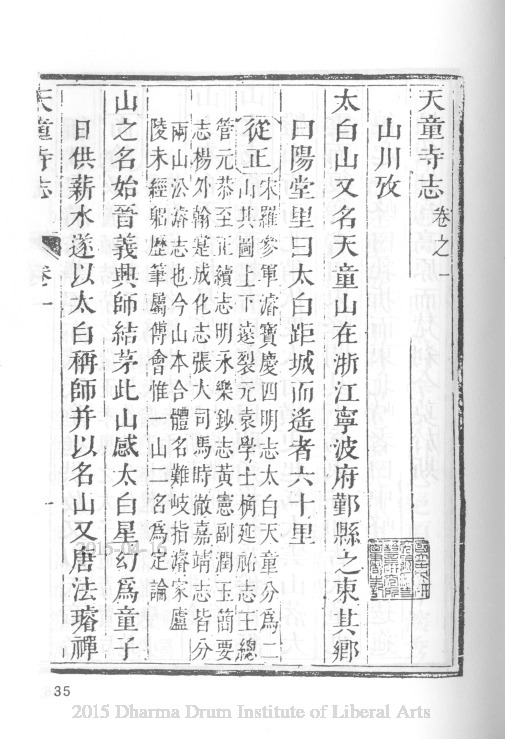 天童寺志卷之一
山川攷
太白山又名天童山在浙江寧波府鄞縣之東其鄉
曰陽堂里曰太白距城而遙者六十里
從正
宋羅參軍濬寶慶四明志太白天童分為二
山其圖上下遠裂元袁學士桷延祐志王總
管元恭至正續志明永樂鈔志黃憲副潤玉簡要
志楊外翰寔成化志張大司馬時徹嘉靖志皆分
兩山沿濬志也今山本合體名難岐指濬家廬
陵未經躬歷筆屬傅會惟一山二名為定論
山之名始晉義興師結茅此山感太白星幻為童子
日供薪水遂以太白稱師并以名山又唐法璿禪
天童寺志
卷一
一
35
2015 Dharma Drum Institute of Liberal Arts